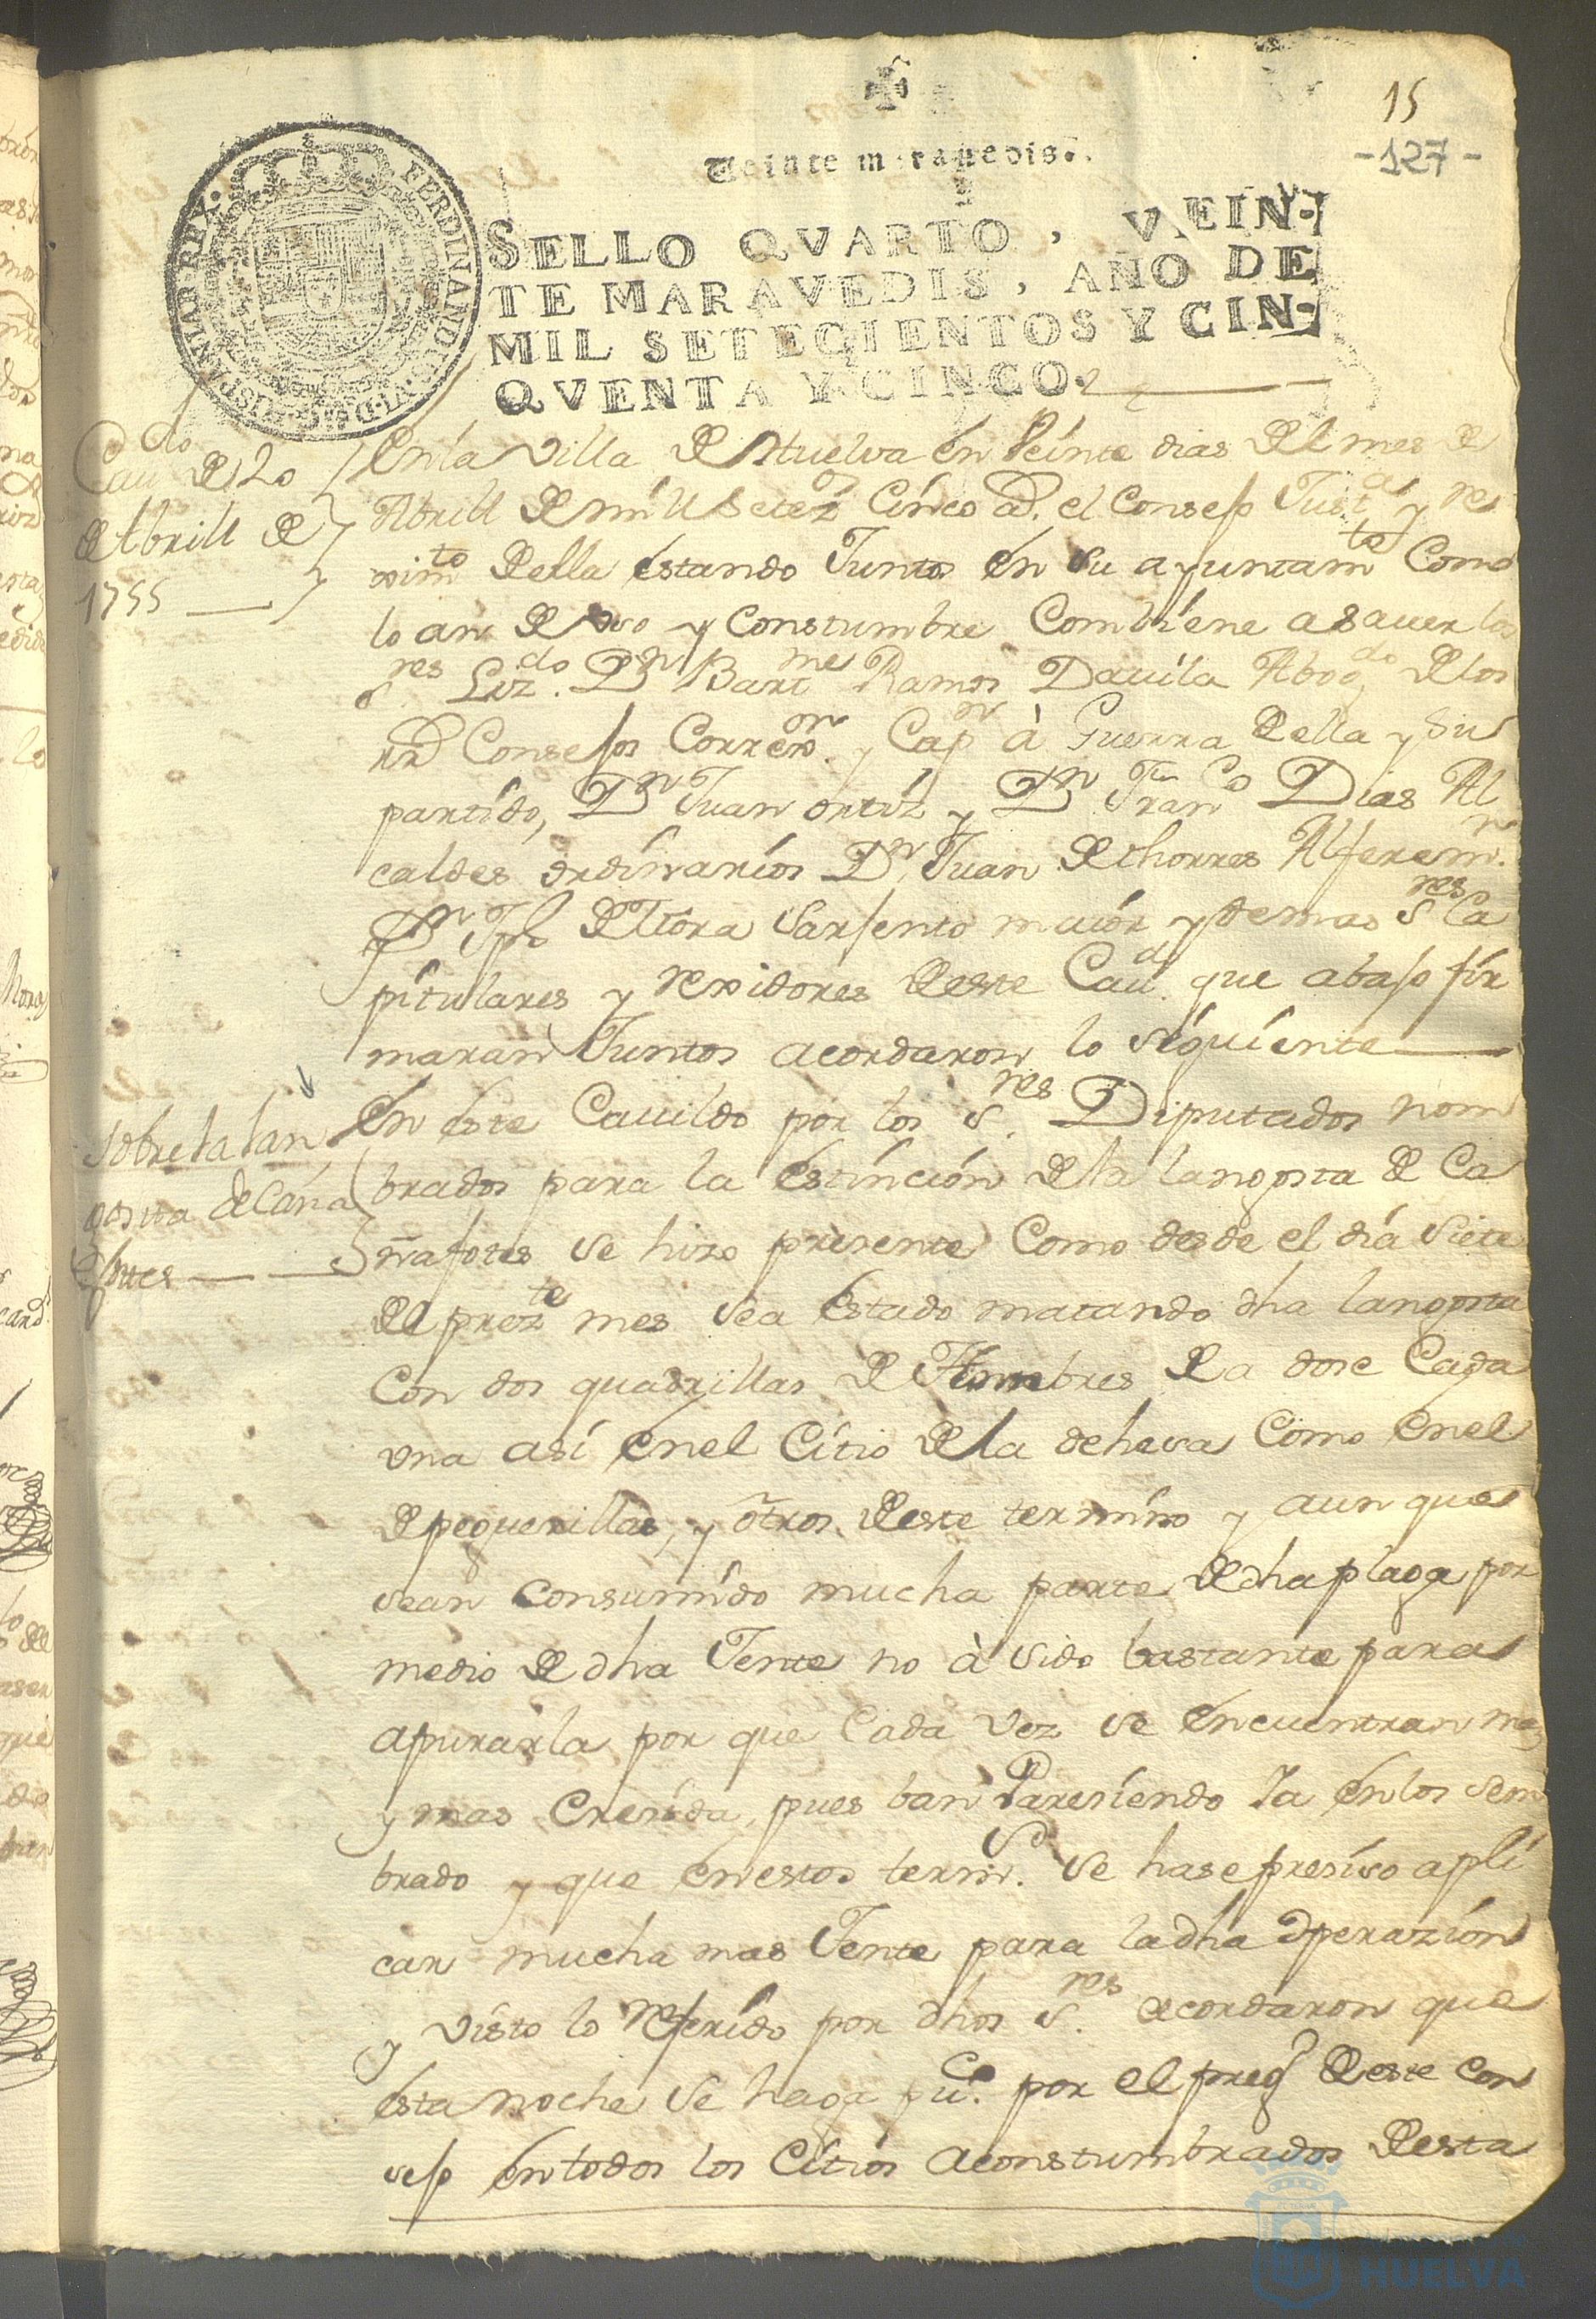 15
-127-
Veinte maravedis.
SELLO QVARTO, VEIN-
TE MARAVEDIS, AÑO DE
MIL SETECIENTOS Y CIN-
QVENTA Y CINCO.
FERDINANDUS VI D.G. HISPANIAR. REX
Cau^do de 20
de Abrill de
1755
En la Villa de Huelva en Veinte dias del mes de
Abrill de mill setez^os Cinco a. el Consejo Just^a y re
ximi^to della estando Juntos en su ayuntam^te Como
lo an de uso y Constumbre Combiene asauer los
s^res Liz^do. D^n Bart^me Ramos Dauila Abog^do de los
R^s Consejos Correx^or y Cap^n à Guerra della y su
partido, D^n Juan ortiz y D^n Fran^co Dias Al
caldes ordinarios D^n Juan de thorres Alferes m^r.
D^n Jph de Mora Sarjento maior y demas S^res Ca
pitulares y rexidores deste Cau^do. que abajo fir
maran Juntos acordaron lo siguiente
sobre la lan
gosta de Caña
fotes
En este Cauildo por los S^res. Diputados nom
brados para la estincion de la langosta de Ca
ñafotes se hizo presente Como desde el dia siete
del prez^te mes sea estado matando dha langosta
Con dos quadrillas de Hombres de a dose Cada
vna asi en el Citio de la dehesa Como en el
de peguerillas, y otros deste termino y aun que
sean consumido mucha parte de dha plaga por
medio de dha Jente no à sido bastante para
apurarla por que Cada vez se encuentran mas
y mas Cresida, pues ban Paresiendo Ya en los sem
brado y que en estos term^os. se hase presiso apli
car mucha mas Jente para la dha Operazion
y visto lo referido por dhos S^res. acordaron que
esta noche se haga pu^co. por el preg^o deste con
sejo en todos los Citios aconstumbrados desta
HUELVA